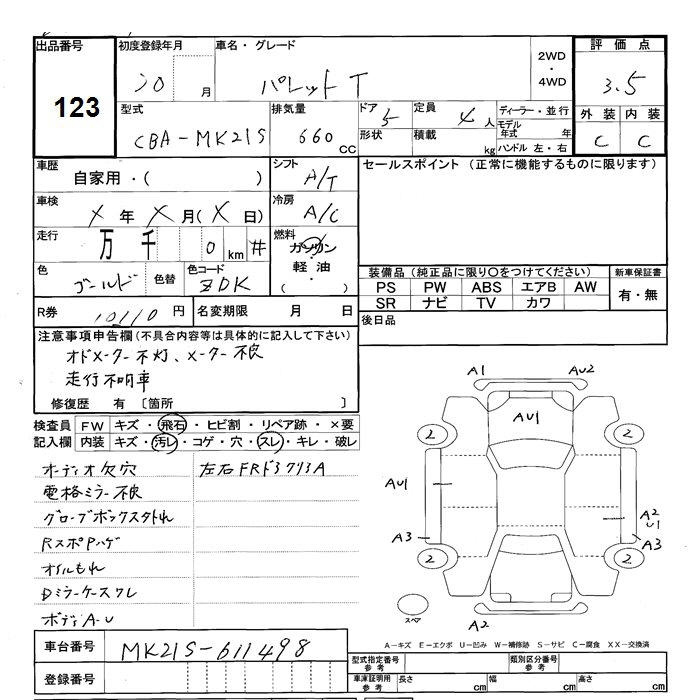 出品番号
123
初度登録年月
20 月
車名・グレード
パレット T
2WD
・
4WD
評価点
3.5
型式
CBA-MK21S
排気量
660 cc
ドア 5
形状
定員 4 人
積載 kg
ディーラー・並行
モデル年式 年
ハンドル 左・右
外装 内装
C C
車歴
自家用・( )
シフト
A/T
セールスポイント (正常に機能するものに限ります)
車検
X 年 X 月(X 日)
冷房
A/C
走行
万 千 0 km #
燃料
ガソリン
・
軽油
( )
色
ゴールド
色替
色コード
ZDK
装備品(純正品に限り○をつけてください)
新車保証書
PS PW ABS エアB AW
SR ナビ TV カワ
有・無
R券 10110 円
名変期限 月 日
後日品
注意事項申告欄(不具合内容等は具体的に記入して下さい)
オドメーター不灯、メーター不良
走行不明車
修復歴 有 〔箇所 〕
検査員 FW キズ・飛石・ヒビ割・リペア跡・×要
記入欄 内装 キズ・汚レ・コゲ・穴・スレ・キレ・破レ
オーディオ欠穴
左右FRドアヨツヨA
電格ミラー不良
グローブボックス外れ
RスポPハゲ
オイルもれ
Dミラーケースワレ
ボディA-U
A1 AU2
AU1
2 2
AU1
A2
U1
A3 A3
2 2
スペア
A2
A－キズ E－エクボ U－凹み W－補修跡 S－サビ C－腐食 XX－交換済
車台番号
MK21S-611498
登録番号
型式指定番号
参考
類別区分番号
参考
車庫証明用
参考
長さ cm
幅 cm
高さ cm